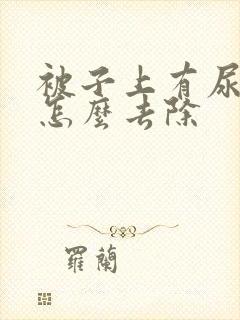 被子上有尿
怎麼去除
羅蘭